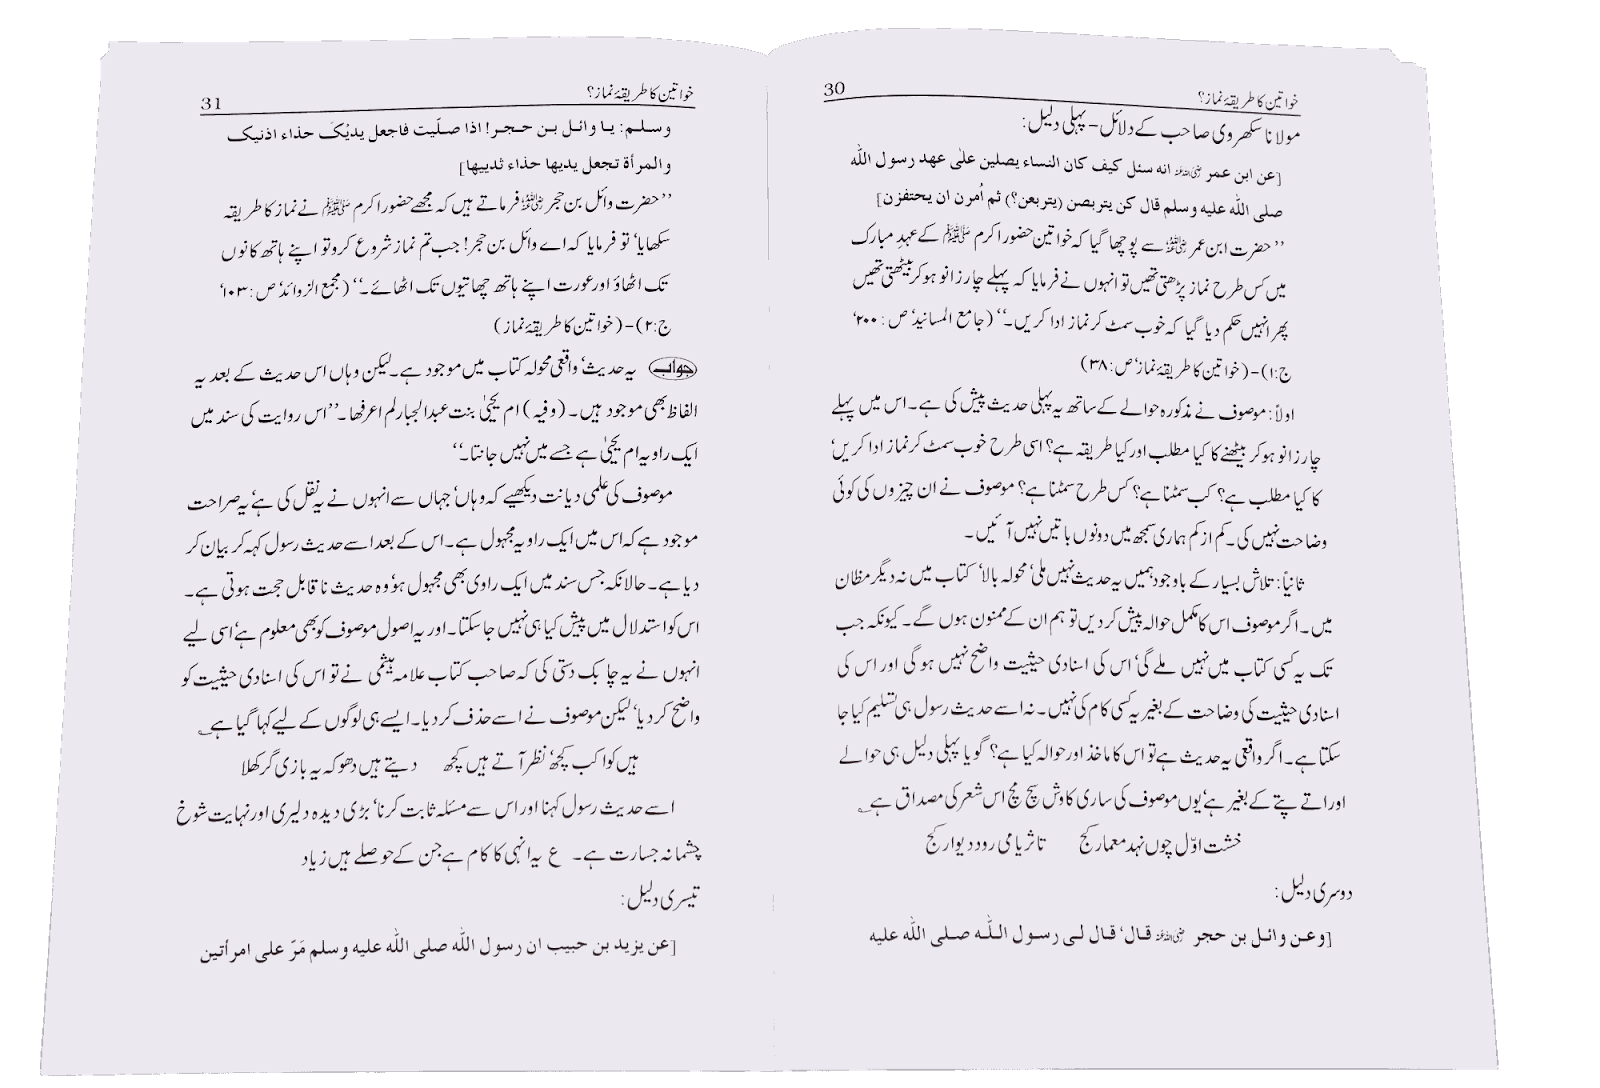 خواتین کا طریقۂ نماز؟ 30
مولانا سکھروی صاحب کے دلائل - پہلی دلیل:
[عن ابن عمر رضی اللہ عنہ انه سئل كيف كان النساء يصلين علٰى عهد رسول الله
صلى الله عليه وسلم قال كن يتربصن (يتربعن؟) ثم اُمرن ان يحتفزن]
’’حضرت ابن عمر رضی اللہ عنہ سے پوچھا گیا کہ خواتین حضور اکرم ﷺ کے عہد مبارک
میں کس طرح نماز پڑھتی تھیں تو انہوں نے فرمایا کہ پہلے چار زانو ہو کر بیٹھتی تھیں
پھر انہیں حکم دیا گیا کہ خوب سمٹ کر نماز ادا کریں۔‘‘ (جامع المسانید‘ ص: ۲۰۰‘
ج:۱)-(خواتین کا طریقۂ نماز‘ ص: ۳۸)
اولاً: موصوف نے مذکورہ حوالے کے ساتھ یہ پہلی حدیث پیش کی ہے۔ اس میں پہلے
چار زانو ہو کر بیٹھنے کا کیا مطلب اور کیا طریقہ ہے؟ اسی طرح خوب سمٹ کر نماز ادا کریں‘
کا کیا مطلب ہے؟ کب سمٹنا ہے؟ کس طرح سمٹنا ہے؟ موصوف نے ان چیزوں کی کوئی
وضاحت نہیں کی۔ کم از کم ہماری سمجھ میں دونوں باتیں نہیں آئیں۔
ثانیاً: تلاش بسیار کے باوجود ہمیں یہ حدیث نہیں ملی‘ محولہ بالا‘ کتاب میں نہ دیگر مظان
میں۔ اگر موصوف اس کا مکمل حوالہ پیش کر دیں تو ہم ان کے ممنون ہوں گے۔ کیونکہ جب
تک یہ کسی کتاب میں نہیں ملے گی‘ اس کی اسنادی حیثیت واضح نہیں ہوگی اور اس کی
اسنادی حیثیت کی وضاحت کے بغیر یہ کسی کام کی نہیں۔ نہ اسے حدیث رسول ہی تسلیم کیا جا
سکتا ہے۔ اگر واقعی یہ حدیث ہے تو اس کا ماخذ اور حوالہ کیا ہے؟ گویا پہلی دلیل ہی حوالے
اور اتے پتے کے بغیر ہے‘ یوں موصوف کی ساری کاوش سچ مچ اس شعر کی مصداق ہے ؎
خشت اوّل چوں نہد معمار کج تا ثریا می رود دیوار کج
دوسری دلیل:
[وعن وائل بن حجر رضی اللہ عنہ قال‘ قال لى رسول الله صلى الله عليه
خواتین کا طریقۂ نماز؟ 31
وسلم: يا وائل بن حجر! اذا صلّيت فاجعل يديْكَ حذاء اذنيك
والمرأة تجعل يديها حذاء ثدييها]
’’حضرت وائل بن حجر رضی اللہ عنہ فرماتے ہیں کہ مجھے حضور اکرم ﷺ نے نماز کا طریقہ
سکھایا‘ تو فرمایا کہ اے وائل بن حجر! جب تم نماز شروع کرو تو اپنے ہاتھ کانوں
تک اٹھاؤ اور عورت اپنے ہاتھ چھاتیوں تک اٹھائے۔‘‘ (مجمع الزوائد‘ ص: ۱۰۳‘
ج:۲)-(خواتین کا طریقۂ نماز)
جواب یہ حدیث‘ واقعی محولہ کتاب میں موجود ہے۔ لیکن وہاں اس حدیث کے بعد یہ
الفاظ بھی موجود ہیں۔ (وفیہ) ام یحیٰی بنت عبدالجبار لم اعرفھا۔ ’’اس روایت کی سند میں
ایک راویہ ام یحیٰی ہے جسے میں نہیں جانتا۔‘‘
موصوف کی علمی دیانت دیکھیے کہ وہاں‘ جہاں سے انہوں نے یہ نقل کی ہے‘ یہ صراحت
موجود ہے کہ اس میں ایک راویہ مجہول ہے۔ اس کے بعد اسے حدیث رسول کہہ کر بیان کر
دیا ہے۔ حالانکہ جس سند میں ایک راوی بھی مجہول ہو‘ وہ حدیث ناقابل حجت ہوتی ہے۔
اس کو استدلال میں پیش کیا ہی نہیں جا سکتا۔ اور یہ اصول موصوف کو بھی معلوم ہے‘ اسی لیے
انہوں نے یہ چابک دستی کی کہ صاحب کتاب علامہ ہیثمی نے تو اس کی اسنادی حیثیت کو
واضح کر دیا‘ لیکن موصوف نے اسے حذف کر دیا۔ ایسے ہی لوگوں کے لیے کہا گیا ہے ؎
ہیں کواکب کچھ‘ نظر آتے ہیں کچھ دیتے ہیں دھوکہ یہ بازی گر کھلا
اسے حدیث رسول کہنا اور اس سے مسئلہ ثابت کرنا‘ بڑی دیدہ دلیری اور نہایت شوخ
چشمانہ جسارت ہے۔ ع یہ انہی کا کام ہے جن کے حوصلے ہیں زیاد
تیسری دلیل:
[عن يزيد بن حبيب ان رسول الله صلى الله عليه وسلم مَرّ على امرأتين